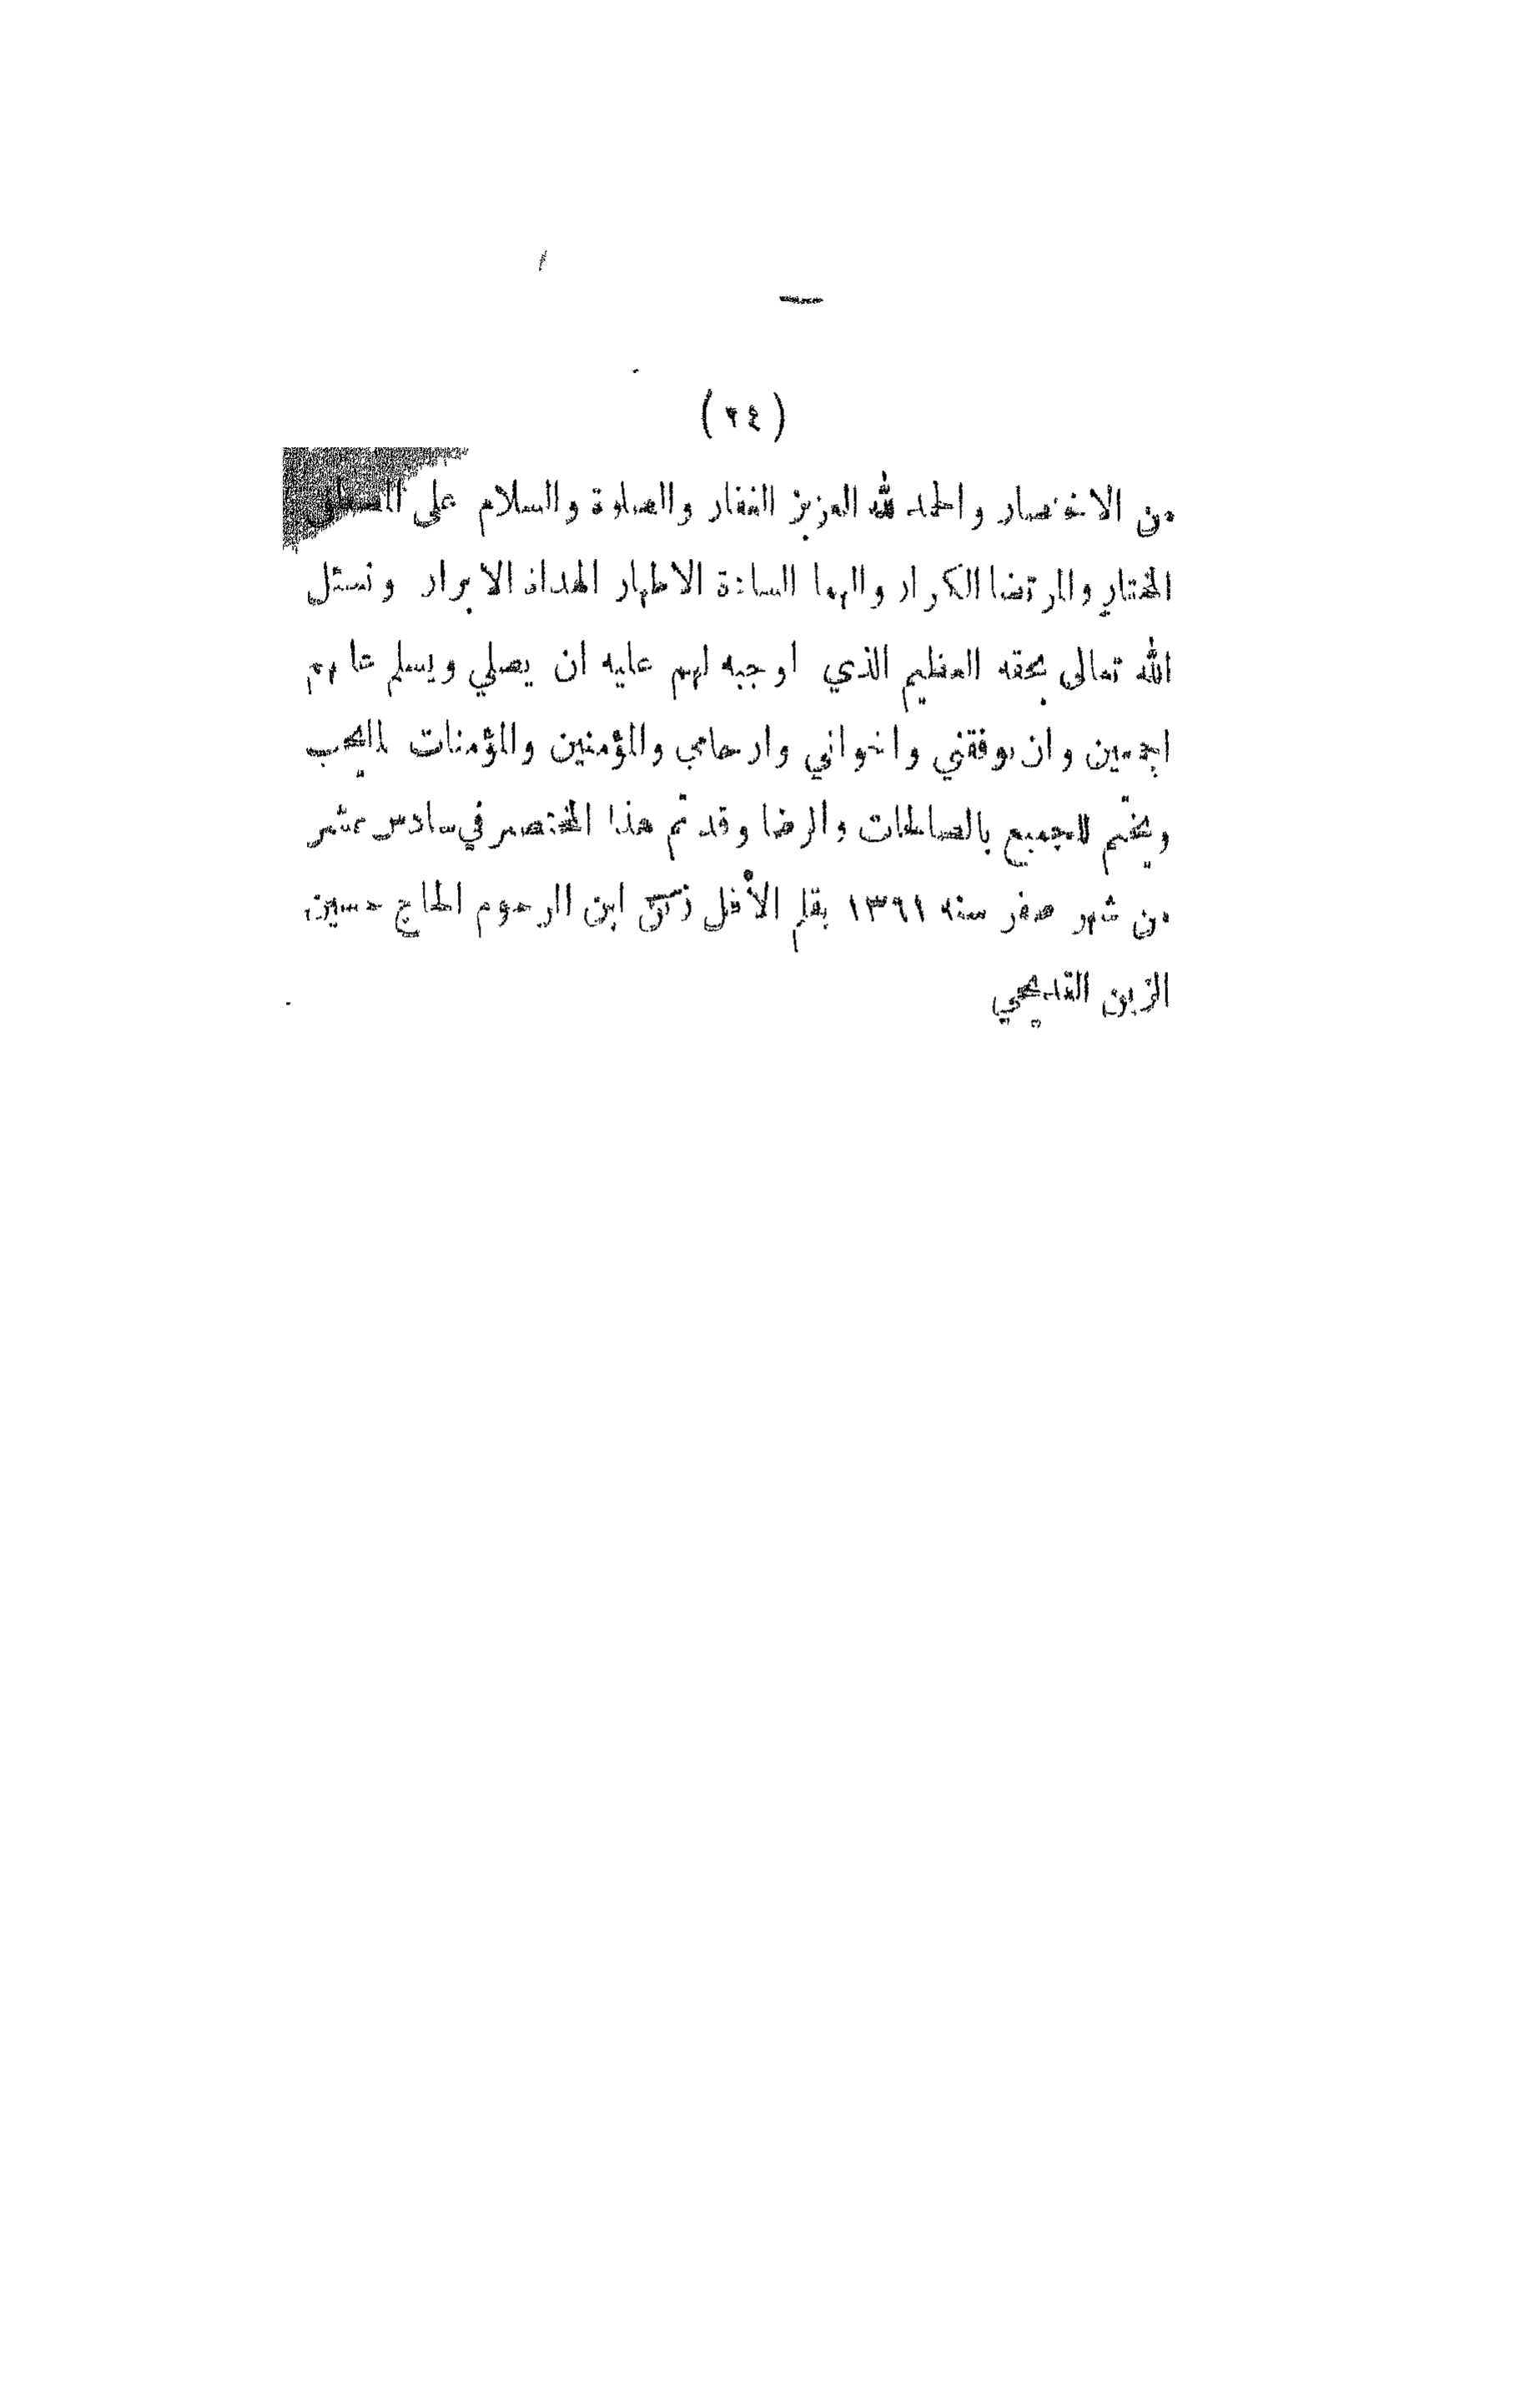 (٢٤)
من الاختصار والحمد لله العزيز الغفار والصلوة والسلام على
المختار والمرتضا الكرار والهما السادة الاطهار الهداة الابرار ونسئل
الله تعالى بحقه العظيم الذي اوجبه لهم عليه ان يصلي ويسلم عليهم
اجمعين وان يوفقني واخواني وارحامي والمؤمنين والمؤمنات لما يحب
ويختم للجميع بالصالحات والرضا وقد تم هذا المختصر في سادس عشر
من شهر صفر سنه ١٣٩١ بقلم الأقل زكي ابن المرحوم الحاج حسين
الزين القديحي